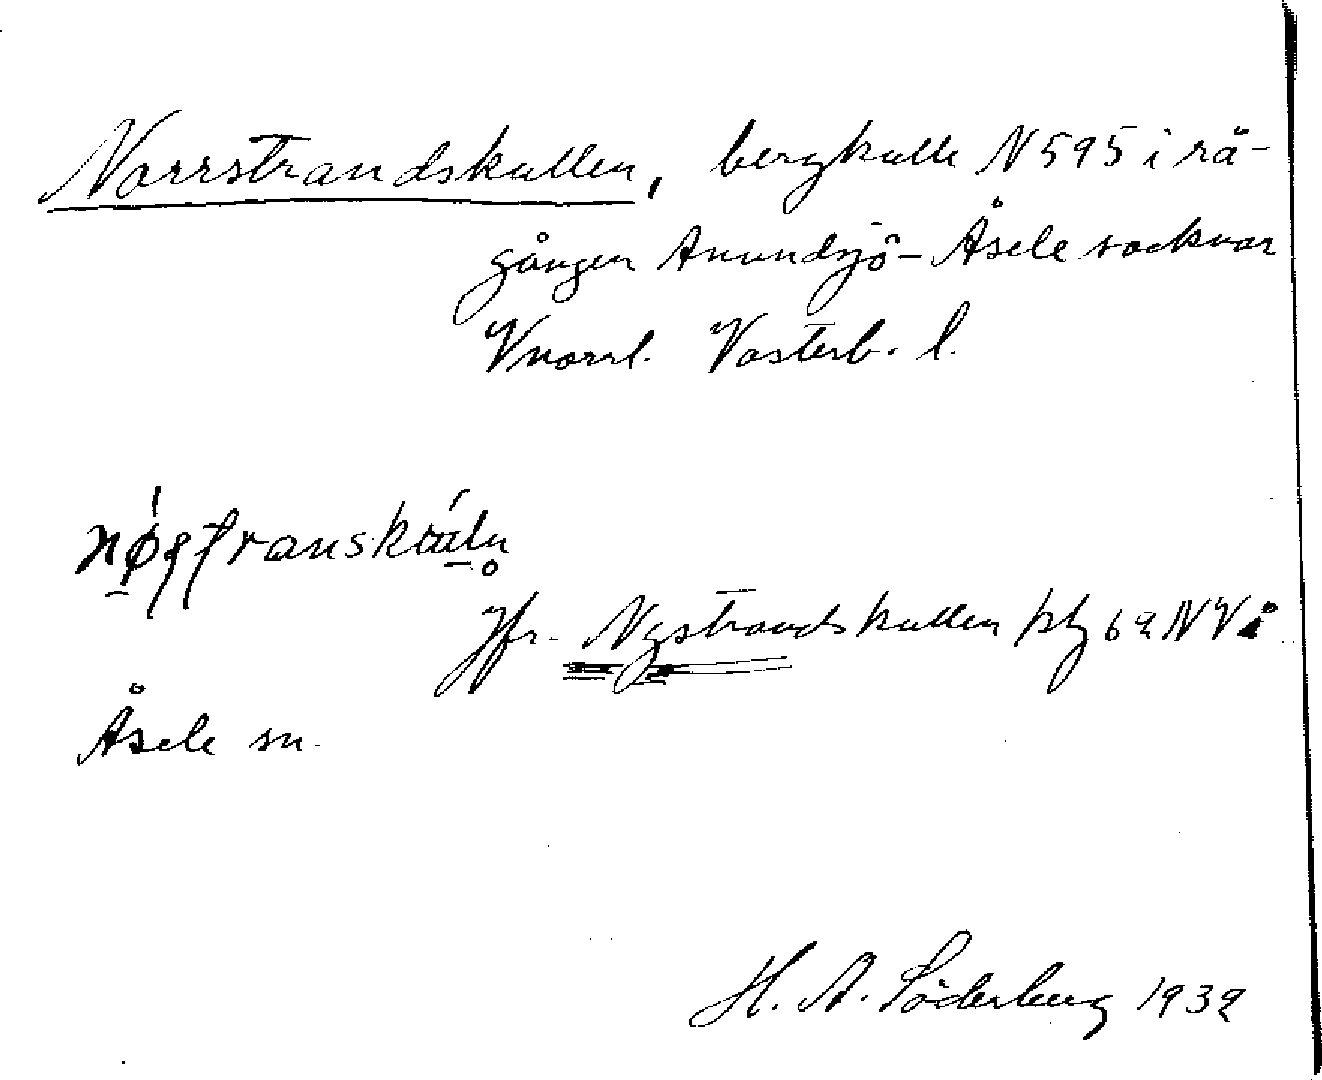 Norrstrandskullen, bergkulle N 595 i rå-
gången Anundsjö-Åsele socknar
Vnorrl. Västerb. l.
Jfr. Nystrandskullen kbl 62 NV i
Åsele sn.
H. A. Söderberg 1932